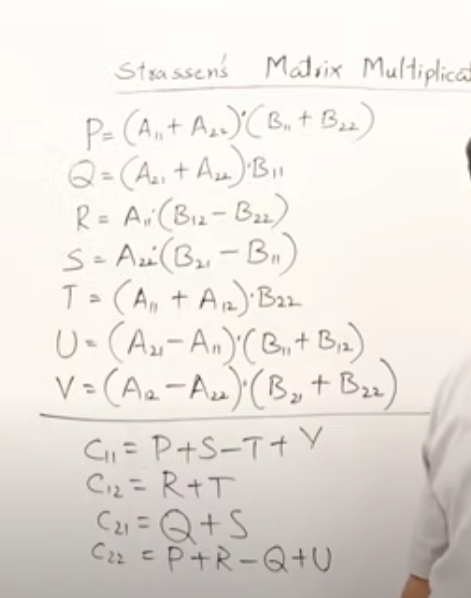 Strassen's Matrix Multiplicat
P= (A₁₁ + A₂₂)·(B₁₁ + B₂₂)
Q = (A₂₁ + A₂₂)·B₁₁
R = A₁₁·(B₁₂ - B₂₂)
S = A₂₂·(B₂₁ - B₁₁)
T = (A₁₁ + A₁₂)·B₂₂
U = (A₂₁ - A₁₁)·(B₁₁ + B₁₂)
V = (A₁₂ - A₂₂)·(B₂₁ + B₂₂)
C₁₁ = P+S-T+V
C₁₂ = R+T
C₂₁ = Q+S
C₂₂ = P+R-Q+U